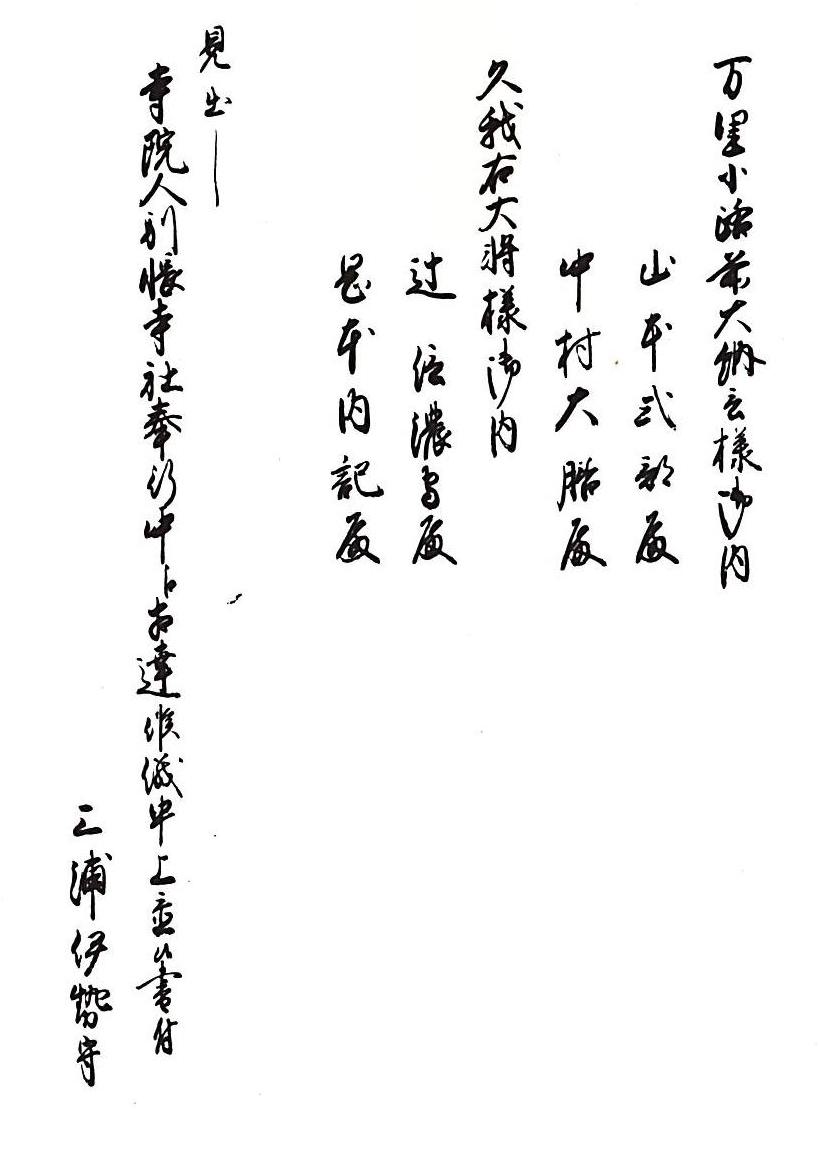 万里小路前大納言様御内
山本式部殿
中村大膳殿
久我右大将様御内
辻信濃守殿
岡本内記殿
見出し
寺院人別帳寺社奉行中江相達候儀申上候書付
三浦伊勢守